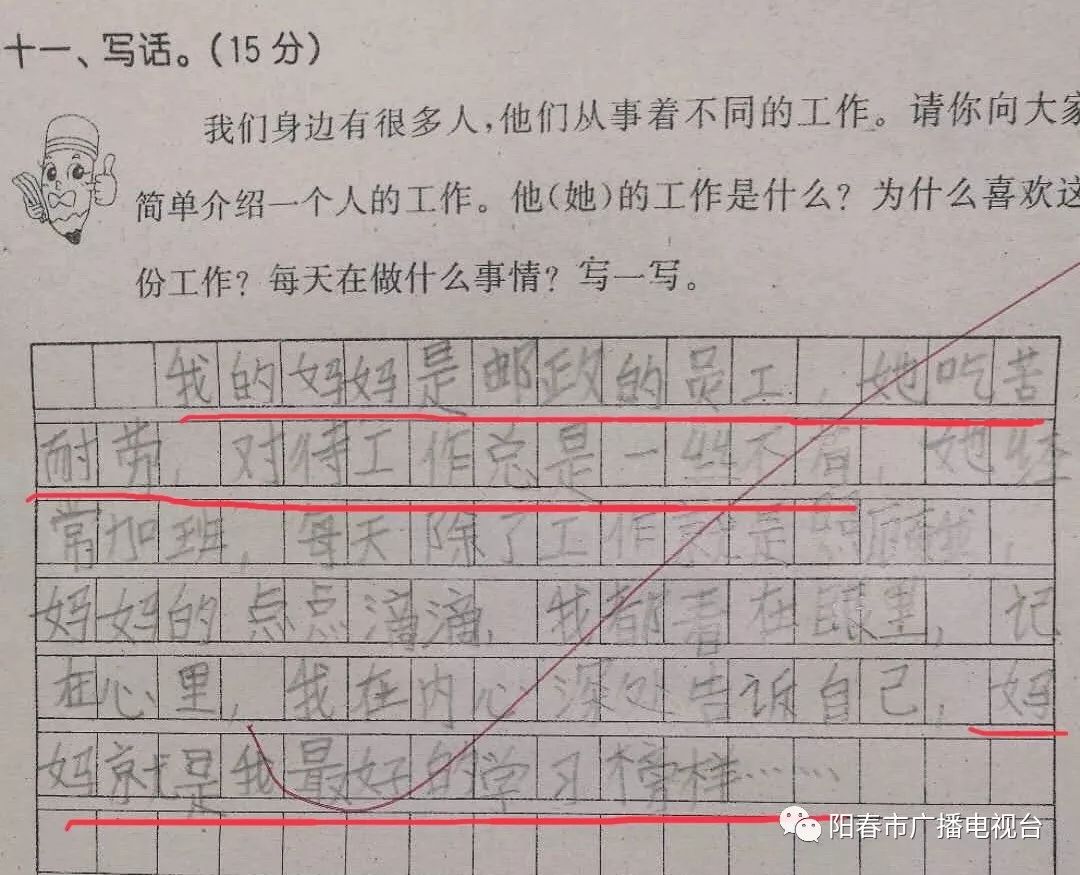 十一、写话。(15分)
我们身边有很多人,他们从事着不同的工作。请你向大家
简单介绍一个人的工作。他(她)的工作是什么?为什么喜欢这
份工作?每天在做什么事情?写一写。
我的妈妈是邮政的员工,她吃苦
耐劳,对待工作总是一丝不苟,她经
常加班,每天除了工作就是照顾我,
妈妈的点点滴滴,我都看在眼里,记
在心里,我在内心深处告诉自己,妈
妈就是我最好的学习榜样……
阳春市广播电视台